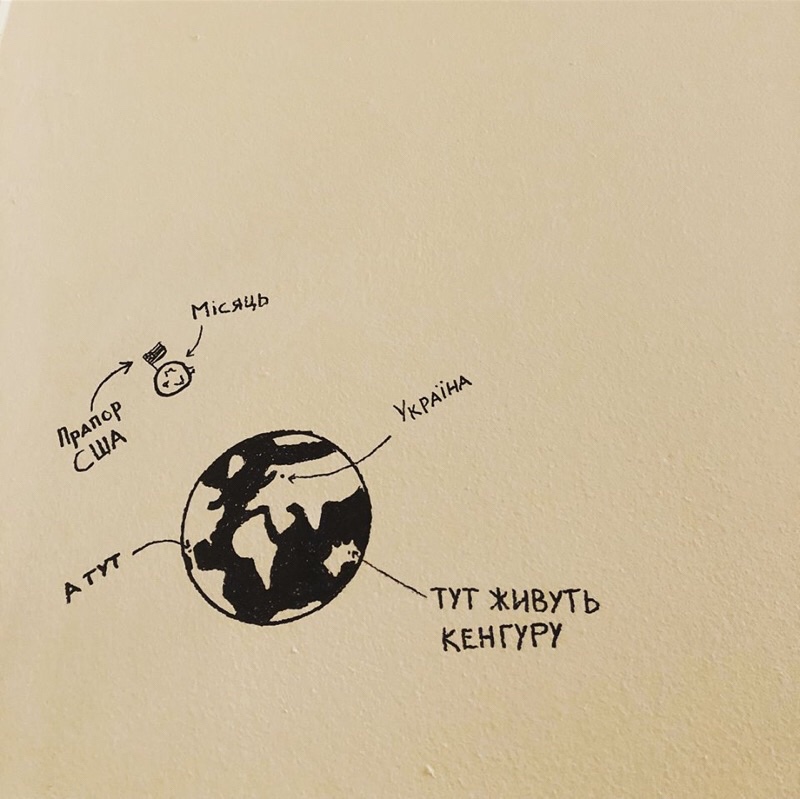 Місяць
Прапор
США
Україна
А ТУТ
ТУТ ЖИВУТЬ
КЕНГУРУ